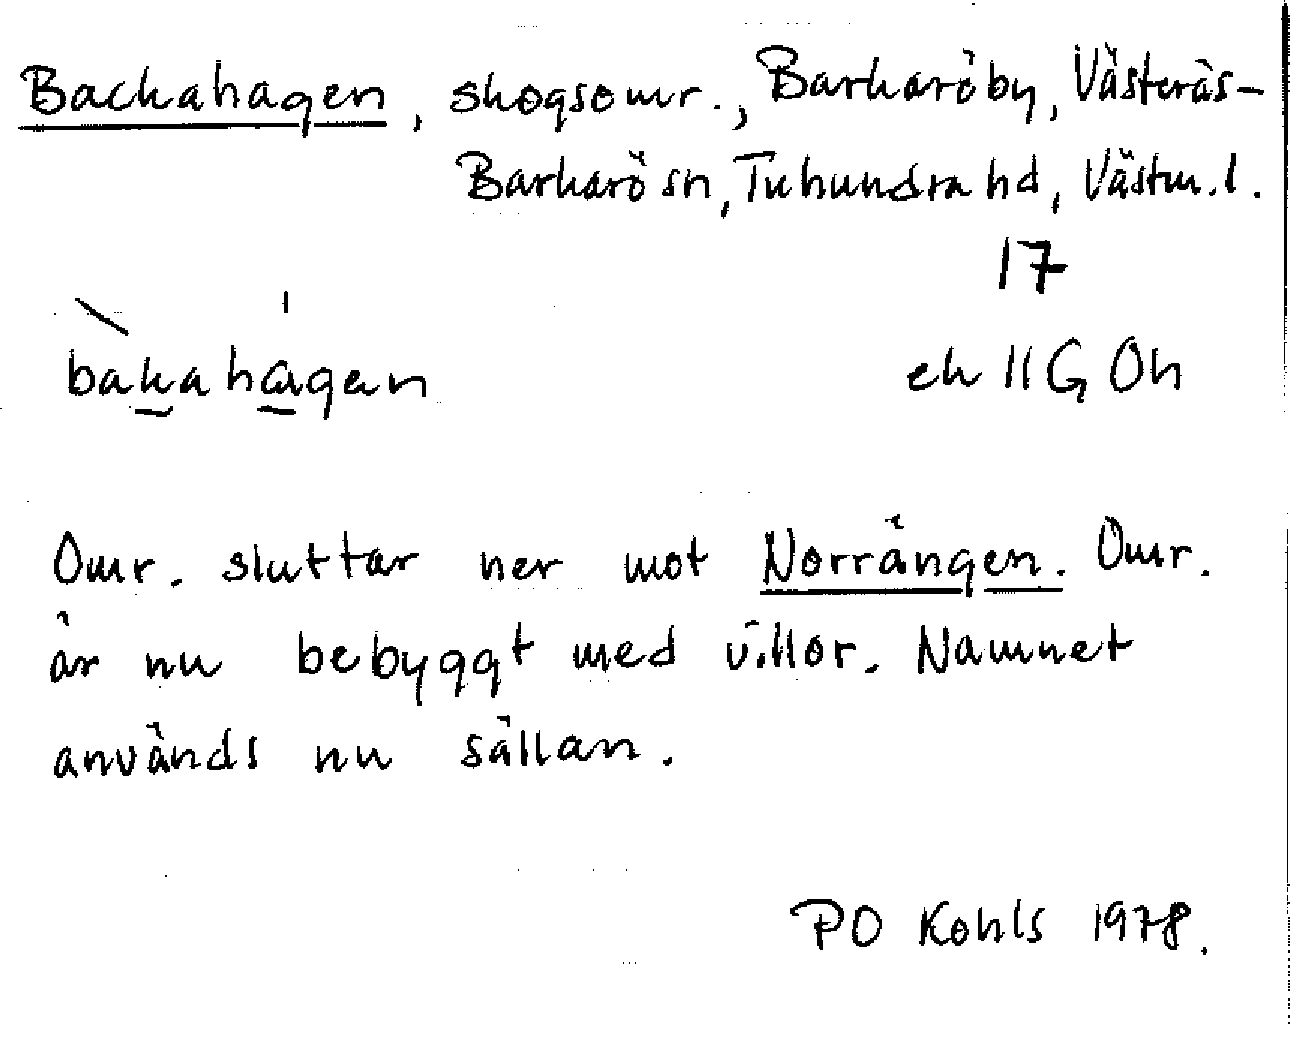 Backahagen, skogsomr., Barkaröby, Västerås-
Barkarö sn, Tuhundra hd, Västm.l.
17
bàkahágen
ek 11G 0h
Omr. sluttar ner mot Norrängen. Omr.
är nu bebyggt med villor. Namnet
används nu sällan.
PO Kohls 1978.